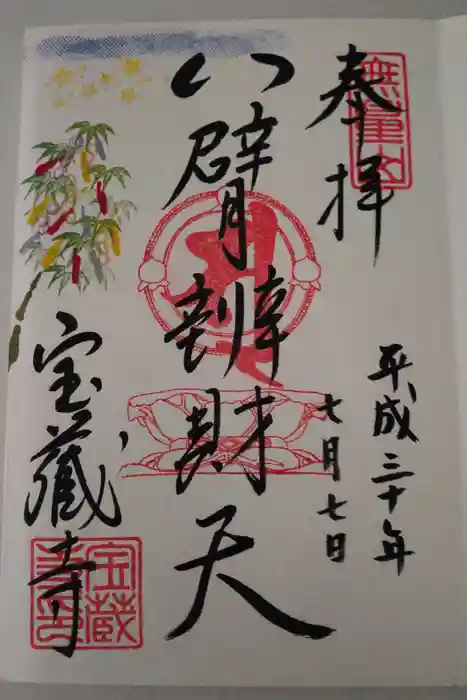 奉拝
無量山
平成三十年
七月七日
八臂辨財天
宝蔵寺
宝蔵寺印